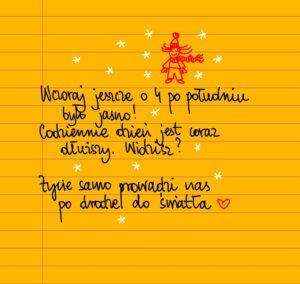 Wczoraj jeszcze o 4 po południu
było jasno!
Codziennie dzień jest coraz
dłuższy. Widzisz?
Życie samo prowadzi nas
po drodze do światła